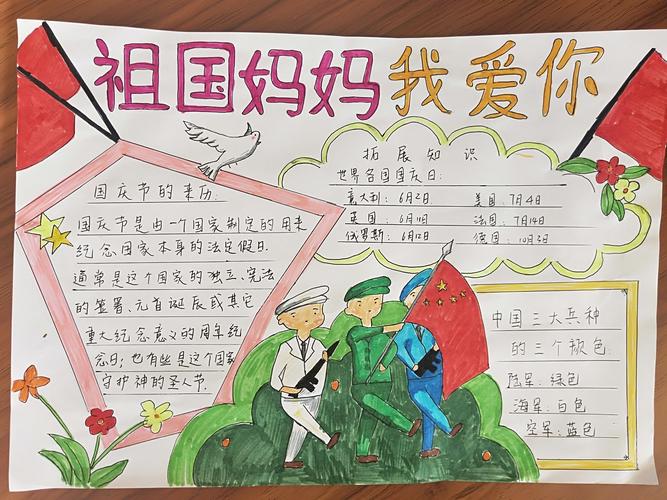 祖国妈妈我爱你
国庆节的来历:
国庆节是由一个国家制定的用来
纪念国家本身的法定假日.
通常是这个国家的独立、宪法
的签署、元首诞辰或其它
重大纪念意义的周年纪
念日;也有些是这个国家
守护神的圣人节.
拓展知识
世界各国国庆日:
意大利:6月2日 美国:7月4日
英国:6月11日 法国:7月14日
俄罗斯:6月12日 德国:10月3日
中国三大兵种
的三个颜色:
陆军:绿色
海军:白色
空军:蓝色